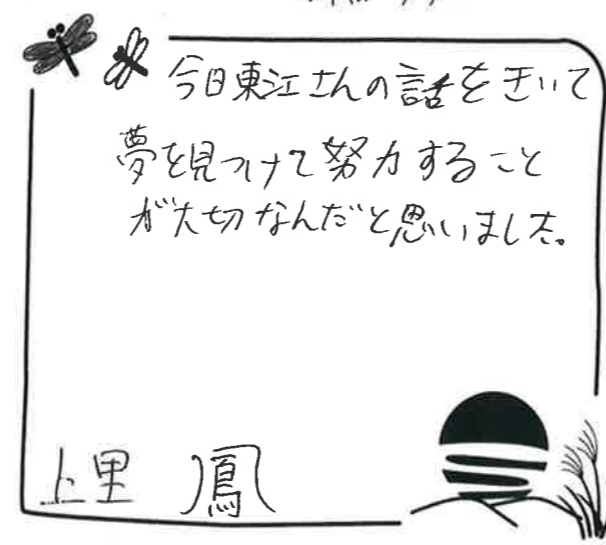 今日東江さんの話をきいて
夢を見つけて努力すること
が大切なんだと思いました。
上里 鳳